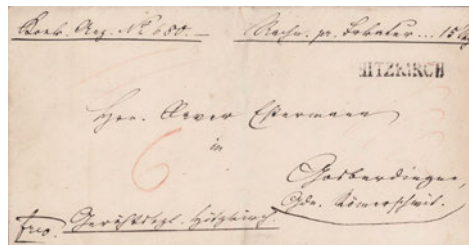 Kontr. Reg. No 680. — Nachn. pr. Porto ... 15
HITZKIRCH
Hrn. Xaver Estermann
in
6
Gosberdingen,
Gde. Römerschwil.
frco. Gerichtskzl. Hitzkirch.